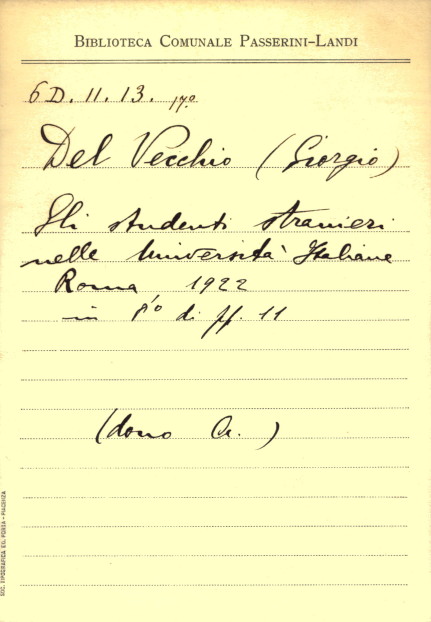 BIBLIOTECA COMUNALE PASSERINI-LANDI
6 D. 11. 13.
Del Vecchio (Giorgio)
Gli studenti stranieri
nelle Università Italiane
Roma 1922
in 8º di pp. 11
(dono )
SOC. TIPOGRAFICA ED. PORTA - PIACENZA